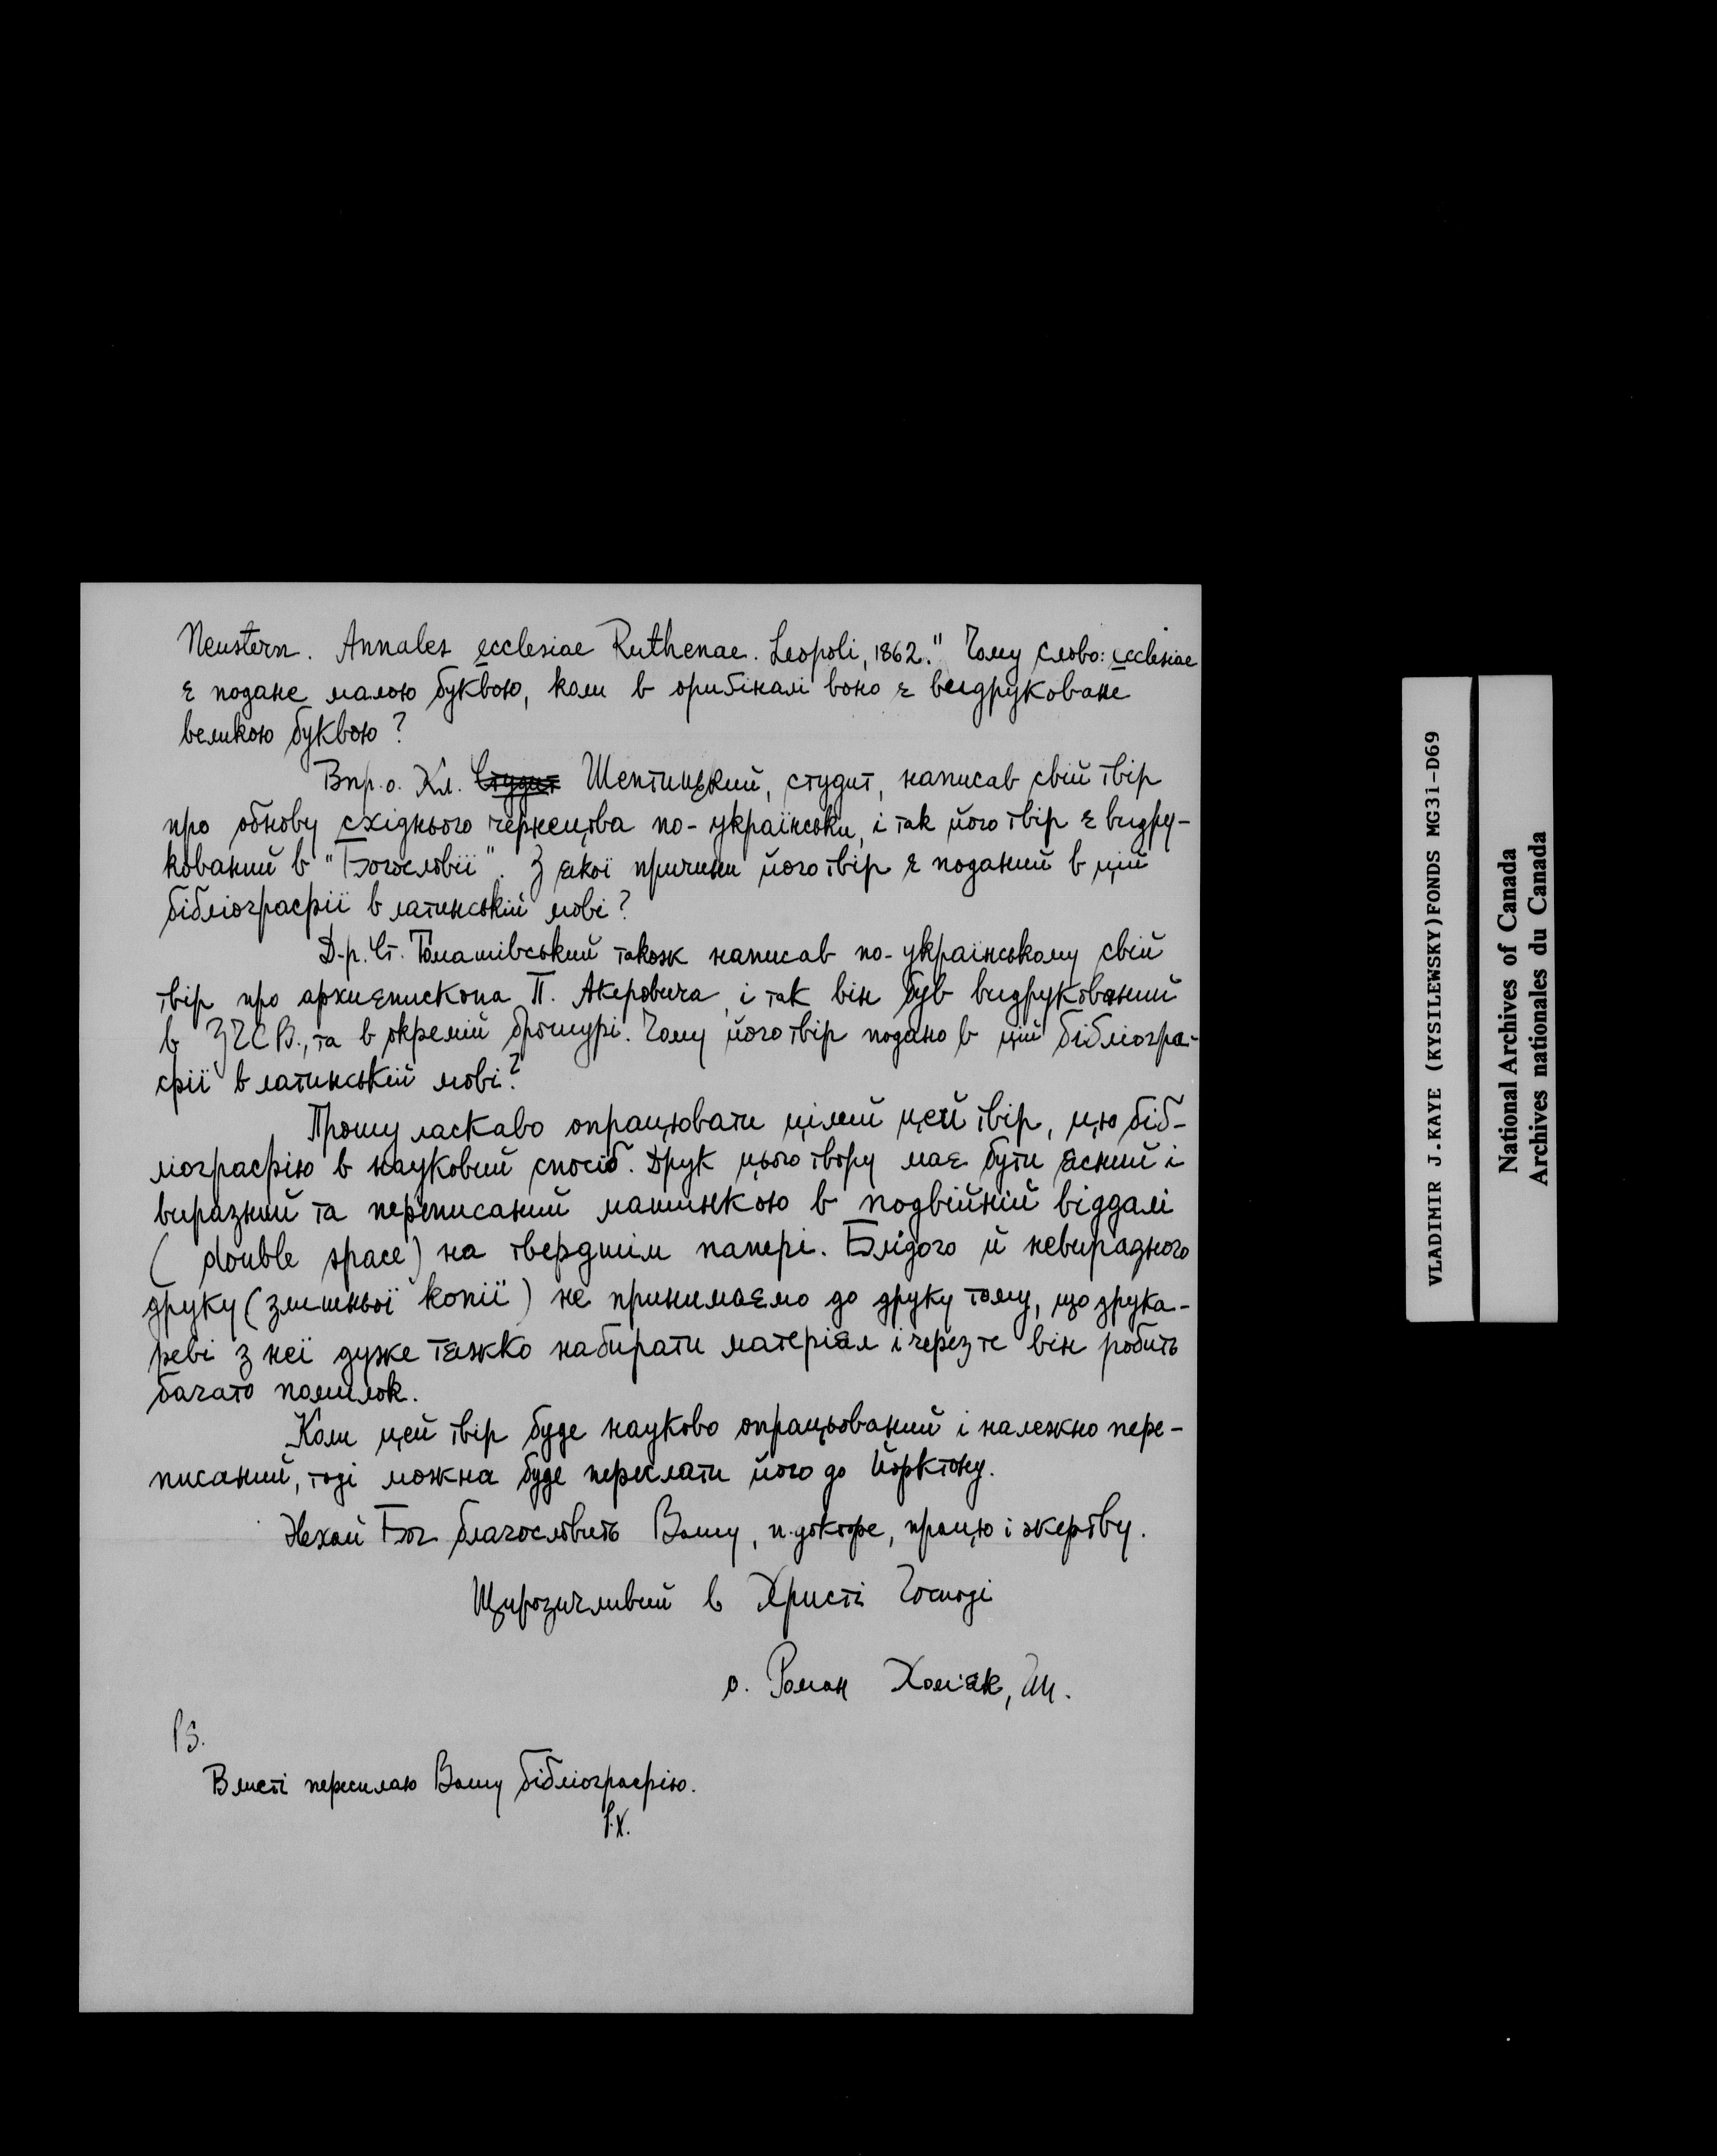 Neustern. Annales ecclesiae Ruthenae. Leopoli, 1862." Чому слово: ecclesiae
є подане малою буквою, коли в ориґіналі воно є видруковане
великою буквою?
Впр. о. Кл. Студит Шептицький, студит, написав свій твір
про обнову східнього чернецтва по-українськи, і так його твір є видру-
кований в "Богословії". З якої причини його твір є поданий в цій
бібліографії в латинській мові?
Д-р. Ст. Томашівський також написав по-українському свій
твір про архиєпископа П. Акеровича, і так він був видрукований
в ЗЧСВ., та в окремій брошурі. Чому його твір подано в цій бібліогра-
фії в латинській мові?
Прошу ласкаво опрацювати цілий цей твір, цю біб-
ліографію в науковий спосіб. Друк цього твору має бути ясний і
виразний та переписаний машинкою в подвійній віддалі
(double space) на твердшім папері. Блідого й невиразного
друку (злишньої копії) не принимаємо до друку тому, що друка-
реві з неї дуже тяжко набирати матеріял і через те він робить
багато помилок.
Коли цей твір буде науково опрацьований і належно пере-
писаний, тоді можна буде переслати його до Йорктону.
Нехай Бог благословить Вашу, п. докторе, працю і жертву.
Щирозичливий в Христі Господі
о. Роман Хом'як, Чн.
PS.
В листі пересилаю Вашу бібліографію.
Р.Х.
VLADIMIR J.KAYE (KYSILEWSKY)FONDS MG31-D69
National Archives of Canada
Archives nationales du Canada